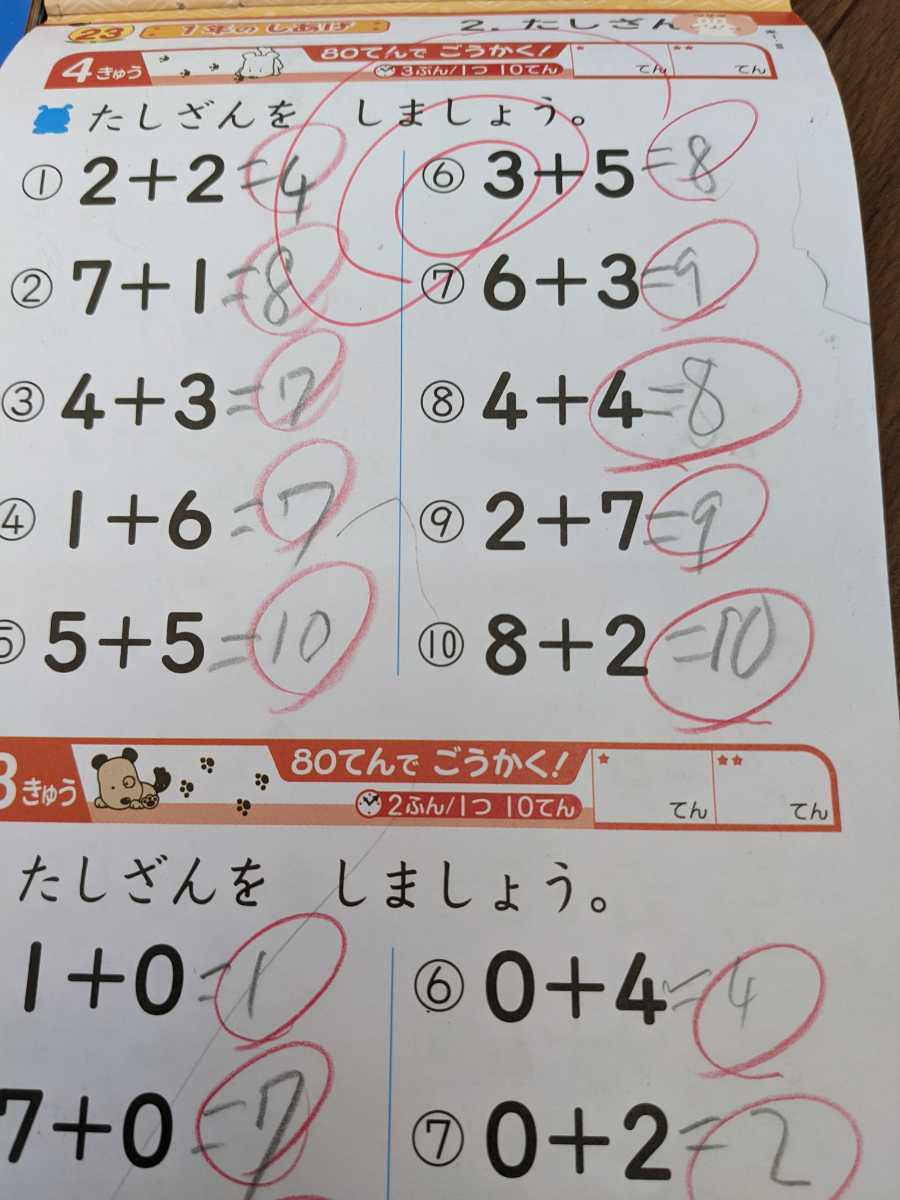 23 1年の しあげ 2. たしざん
4きゅう 80てんで ごうかく!
3ぷん/1つ 10てん
★ てん ★★ てん
たしざんを しましょう。
① 2+2=4
② 7+1=8
③ 4+3=7
④ 1+6=7
⑤ 5+5=10
⑥ 3+5=8
⑦ 6+3=9
⑧ 4+4=8
⑨ 2+7=9
⑩ 8+2=10
3きゅう 80てんで ごうかく!
2ふん/1つ 10てん
★ てん ★★ てん
たしざんを しましょう。
1+0=1
7+0=7
⑥ 0+4=4
⑦ 0+2=2